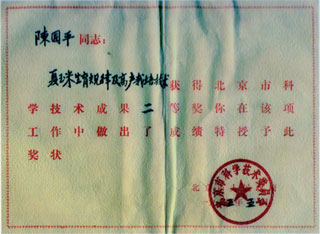 陳国平同志：
夏玉米生育规律及高产栽培技术获得北京市科
学技术成果二等奖你在该项
工作中做出了成绩特授予此
奖状